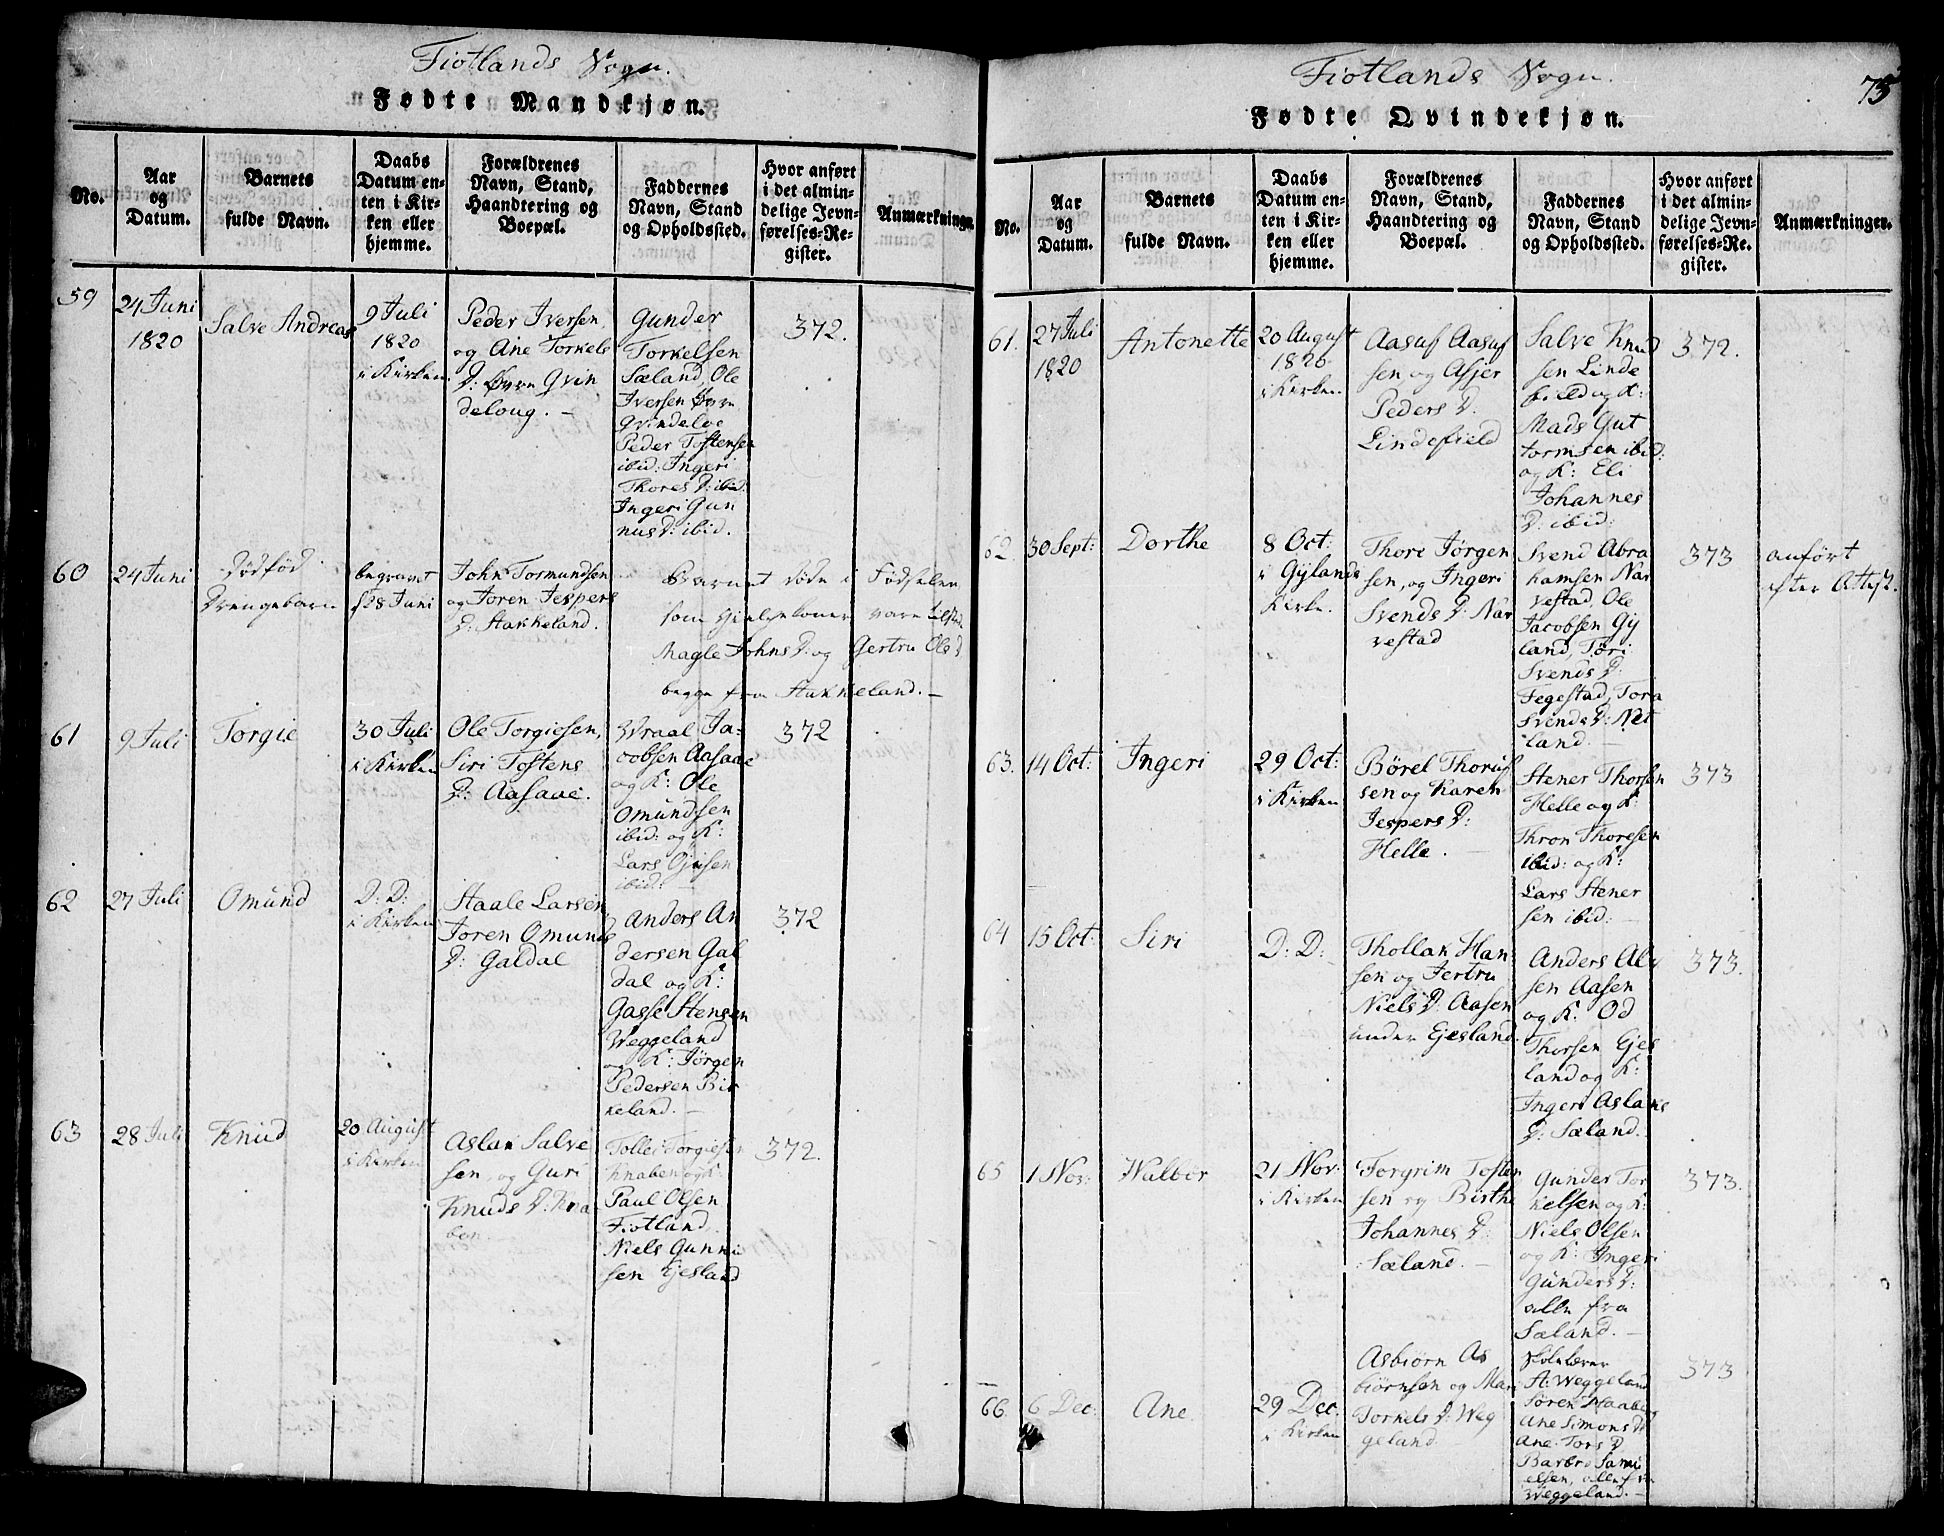 Fiotlands Sogn.
Fødte Mandkjøn.
No.
Aar
og
Datum.
Barnets
fulde Navn.
Daabs
Datum en-
ten i Kir-
ken eller
hjemme.
Forældrenes
Navn, Stand,
Haandtering og
Boepæl.
Faddernes
Navn, Stand
og Opholdssted.
Hvor anført
i det almin-
delige Jevn-
førelses-Re-
gister.
Anmærkninger.
59
24 Juni
1820
Salve Andreas
9 Juli
1820
i Kirken
Peder Iversen,
og Ane Torkels
D: Øvre Qvin
deloug. –
Gunder
Torkelsen
Sæland, Ole
Iversen Øvre
Qvindeloe
Peder Tostensen
ibid: Ingeri
Thores D: ibid:
Ingeri Gun
nus D: ibid.
372.
60
24 Juni
Dødfød
Drengebarn
begravet
d 28 Juni
John Tormundsen
og Joren Jespers
D: Stakkeland.
Barnet døde i Fødselen
som Hielpekoner vare tilstede
Magle Johns D: og Gertru Ole D
begge fra Stakkeland. –
61
9 Juli
Torgie
30 Juli
i Kirken
Ole Torgiesen,
Siri Tostens
D: Aasaae.
Wraal Ja-
cobsen Aasaae
og K: Ole
Omundsen
ibid: og K:
Lars
ibid: –
372
62
27 Juli
Omund
D: D:
i Kirken
Staale Larsen
Joren Omunds
D: Galdal
Anders An
dersen Gal
dal og K:
Gasse Stensen
Weggeland
og K: Jørgen
Pedersen Bir
keland. –
372
63
28 Juli
Knud
20 August
i Kirken
Aslak Salve
sen, og Guri
Knuds D: Kna
ben. –
Tollei Torgiesen
Knaben og K:
Paul Olsen
Fiotland.
Niels Gunni
sen Ejesland
372.
Fiotlands Sogn.
75
Fødte Qvindekjøn.
No.
Aar
og
Datum.
Barnets
fulde Navn.
Daabs
Datum en-
ten i Kir-
ken eller
hjemme.
Forældrenes
Navn, Stand,
Haandtering og
Boepæl.
Faddernes
Navn, Stand
og Opholdssted.
Hvor anført
i det almin-
delige Jevn-
førelses-Re-
gister.
Anmærkninger.
61.
27 Juli
1820
Antonette
20 August
1820
i Kirken.
Aasuf Aasuf
sen, og Asjer
Peders D:
Lindefield
Salve Knud
sen Linde
field og K:
Mads Gut
tormsen ibid:
og K: Eli
Johannes
D: ibid:
372.
62.
30 Sept:
Dorthe
8 Oct:
i Gylands
Kirke.
Thore Jørgen
sen, og Ingeri
Svends D: Nar
vestad
Svend Abra
hamsen Nar
vestad, Ole
Jacobsen Gy
land, Tøri
Svends D:
Fegestad, Tora
Svends D: Net
land. –
373
anført
efter Attest.
63.
14 Oct:
Ingeri
29 Oct:
i Kirken
Børel Thorus
sen og Karen
Jespers D:
Helle. –
Stener Thorsen
Helle og K:
Thron Thoresen
ibid: og K:
Lars Stener
sen ibid: –
373
64
15 Oct:
Siri
D: D:
Thollak Han
sen og Jertru
Niels D: Aasen
under Ejesland.
Anders Alv
sen Aasen
og K: Od
Thorsen Ejes
land og K:
Ingeri Aslaks
D: Sæland.
373.
65
1 Nov:
Walbor
21 Nov:
i Kirken
Torgrim Tosten
sen og Birthe
Johannes D:
Sæland. –
Gunder Tor
kelsen og K:
Niels Olsen
og K: Ingeri
Gunders D:
alle fra
Sæland. –
373.
66.
6 Dec:
Ane
29 Dec:
i Kirken
Asbiørn As
biørnsen og Mari
Torkels D: Weg
geland
Skolelærer
A: Weggeland
Søren Haaberg
Ane Simons D
Ane Tors D
Barbro Samu
elsen, alle fra
Weggeland. –
373